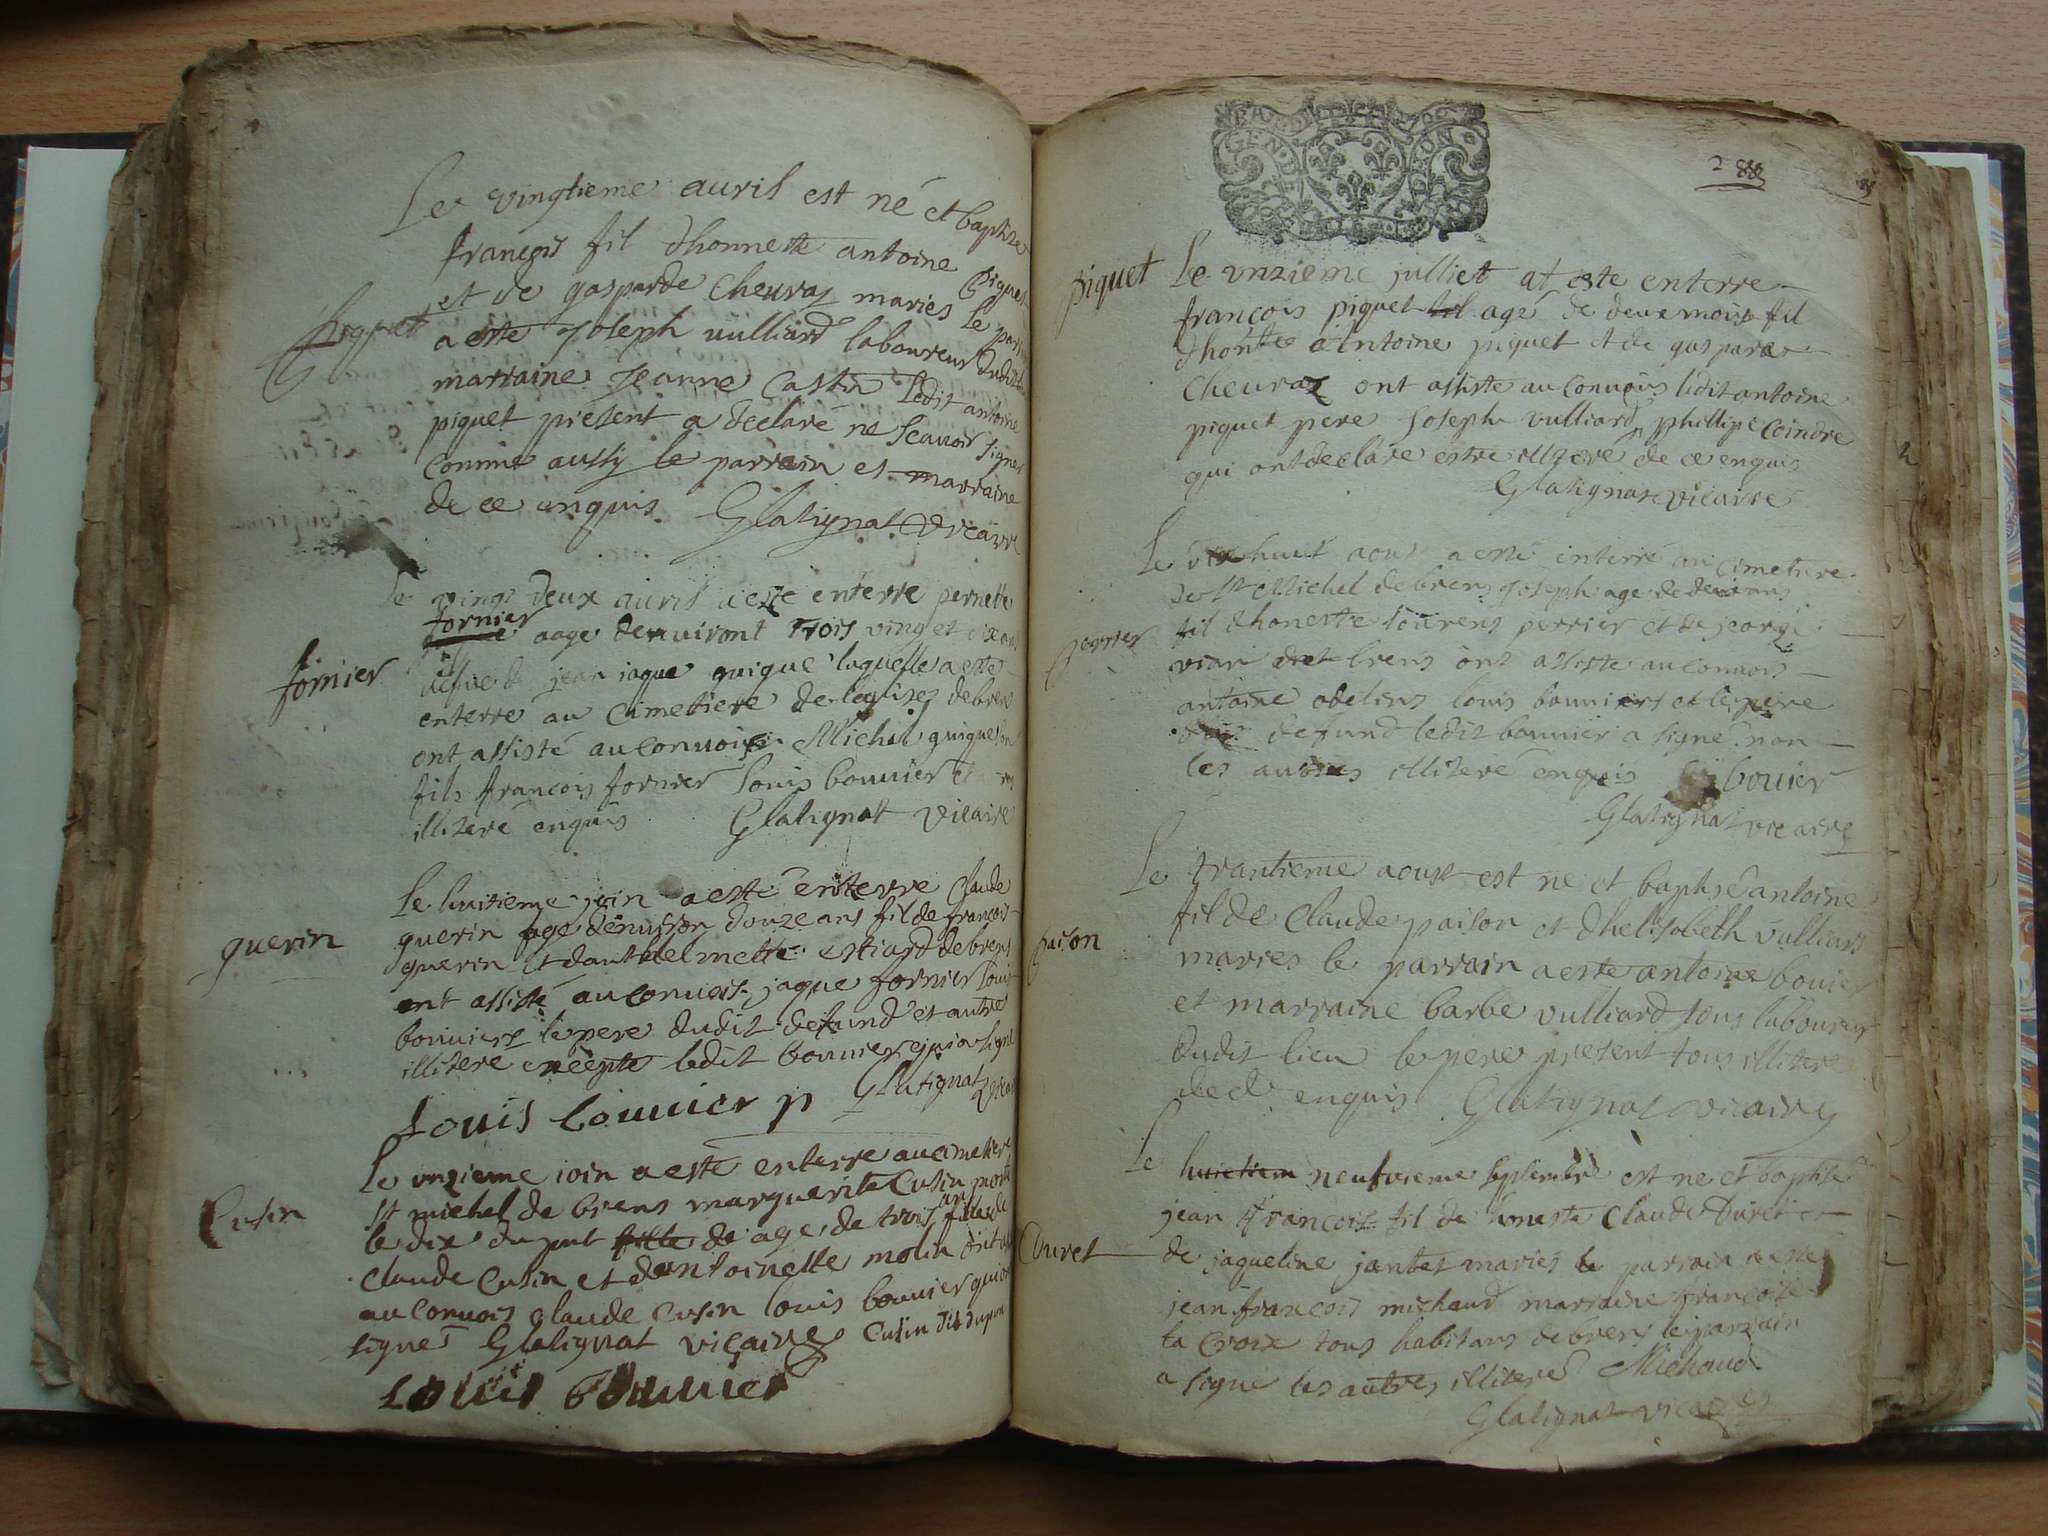 Le vingtieme auril est né et baptise
françois fil dhonneste antoine piquet
et de gasparde cheuraz maries le parrain
piquet
a este Joseph uulliard laboureur dudit
marraine Jeanne Castin ledit antoine
piquet present a declaré ne scauoir signer
comme aussy le parrain et marraine
de ce enquis Glatignat vicaire
Le vingt deux auril a este enterre pernette
fornier aage denuiront trois vingt et dix ans
fornier
uefue de jean jaque guigue laquelle a este
enterre au cimetiere de leglises de brens
ont assisté au conuois Michel guigue son
fils françois fornier louis bouuier
illiteré enquis Glatignat vicaire
Le huitieme join a esté enterre Claude
guerin age denuison douze ans fil de françois
guerin
guerin et dant de brens
ont assisté au conuois jaque fornier louis
bouuiers le pere dudit defund et autres
illitere excepte ledit bouuier qui a signe
Louis bouuier Glatignat vicaire
Le unzieme join a este enterre au cimetiere
st michel de brens marguerite Cusin morte
Cusin
le dix du pnt fille de age de trois an fille de
claude Cusin et dantoinette molin ont
au conuois glaude Cusin louis bouuier qui ont
signé Glatignat vicaire Cusin dit dupon
Louis bouuier
GEN DE LION
288
piquet
Le unzieme julliet at este enterre
françois piquet fil agé de deux mois fil
dhonte antoine piquet et de gasparde
cheuraz ont assiste au conuois ledit antoine
piquet pere Joseph vulliard phillipe Coindre
qui ont declare estre illiteré de ce enquis
Glatignat vicaire
Le dix huit aout a esté enterré au cimetiere
de st Michel de brens Joseph age de deux ans
perrier
fil dhoneste lourens perrier et de jeorge
viari de brens ont assiste au conuois
antoine louis bouuiers et le pere
dudit defund ledit bouuier a signé non
les autres illiteré enquis bouier
Glatignat vicaire
Le trantieme aoust est ne et baptisé antoine
fil de Claude paison et dhelisabeth vulliard
paison
maries le parrain a este antoine bouier
et marraine barbe vulliard tous laboureur
dudit lieu le pere present tous illiteres
de ce enquis Glatignat vicaire
Le huictiem neufvieme septembre est ne et baptisé
jean françois fil de honeste Claude Duret et
Duret
de jaqueline jantet maries le parrain a este
jean françois michaud marraine françoise
la Croix tous habitans de brens le parrain
a signe les autres illiteré Michaud
Glatignat vicaire